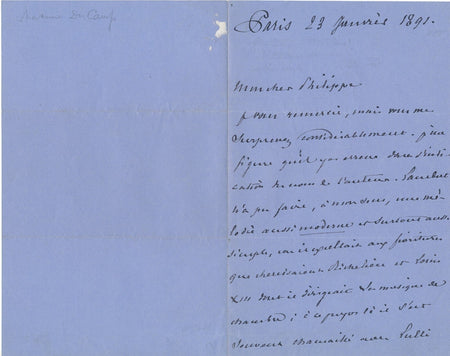 Maxime Du Camp
Paris 23 Janvier 1891.
Mon cher Philippe
je vous remercie, mais vous me
surprenez considérablement. j'me
figure qu'il y a erreur dans l'indi-
cation du nom de l'auteur. Lambert
n'a pu faire, à mon sens, une mé-
lodie aussi moderne et surtout aussi
simple, car il excellait aux fioritures
que chérissaient Richelieu et Louis
XIII dont il dirigeait la musique de
chambre; à ce propos là il s'est
souvent chamaillé avec Lulli